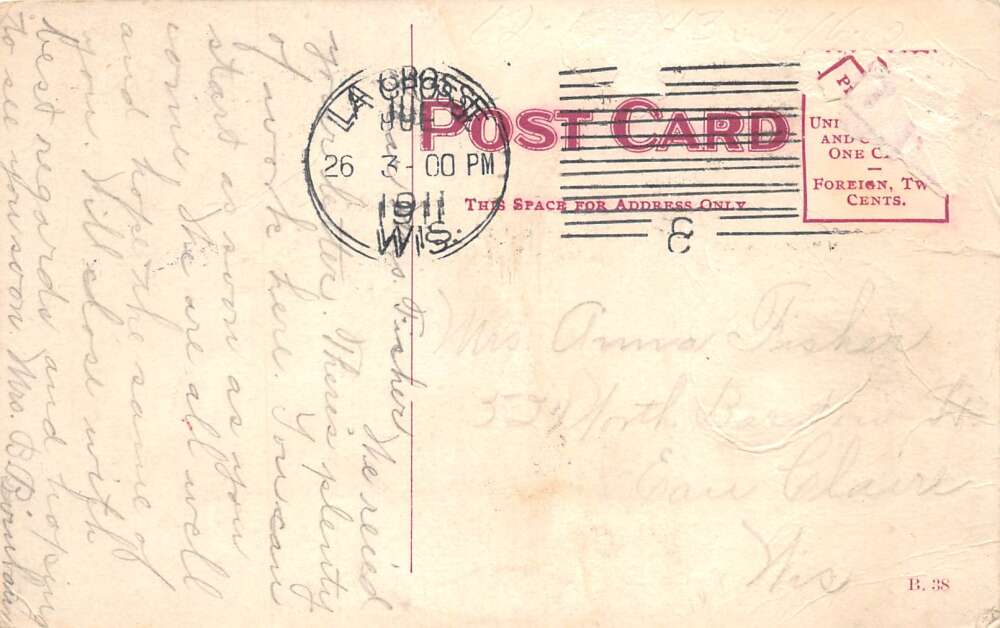 POST CARD
THIS SPACE FOR ADDRESS ONLY
UNI
AND
ONE C
FOREIGN, TW
CENTS.
LA CROSSE
JUL
26 3-00 PM
1911
WIS.
8
Mrs Anna Fisher
North St.
Eau Claire
Wis
B. 38
Mrs. Fisher
We rec'd
your letter. There's plenty
of work here. You can
start as soon as you
come. We are all well
and hope the same of
you. Will close with
best regards and hoping
to see you soon Mrs. B.